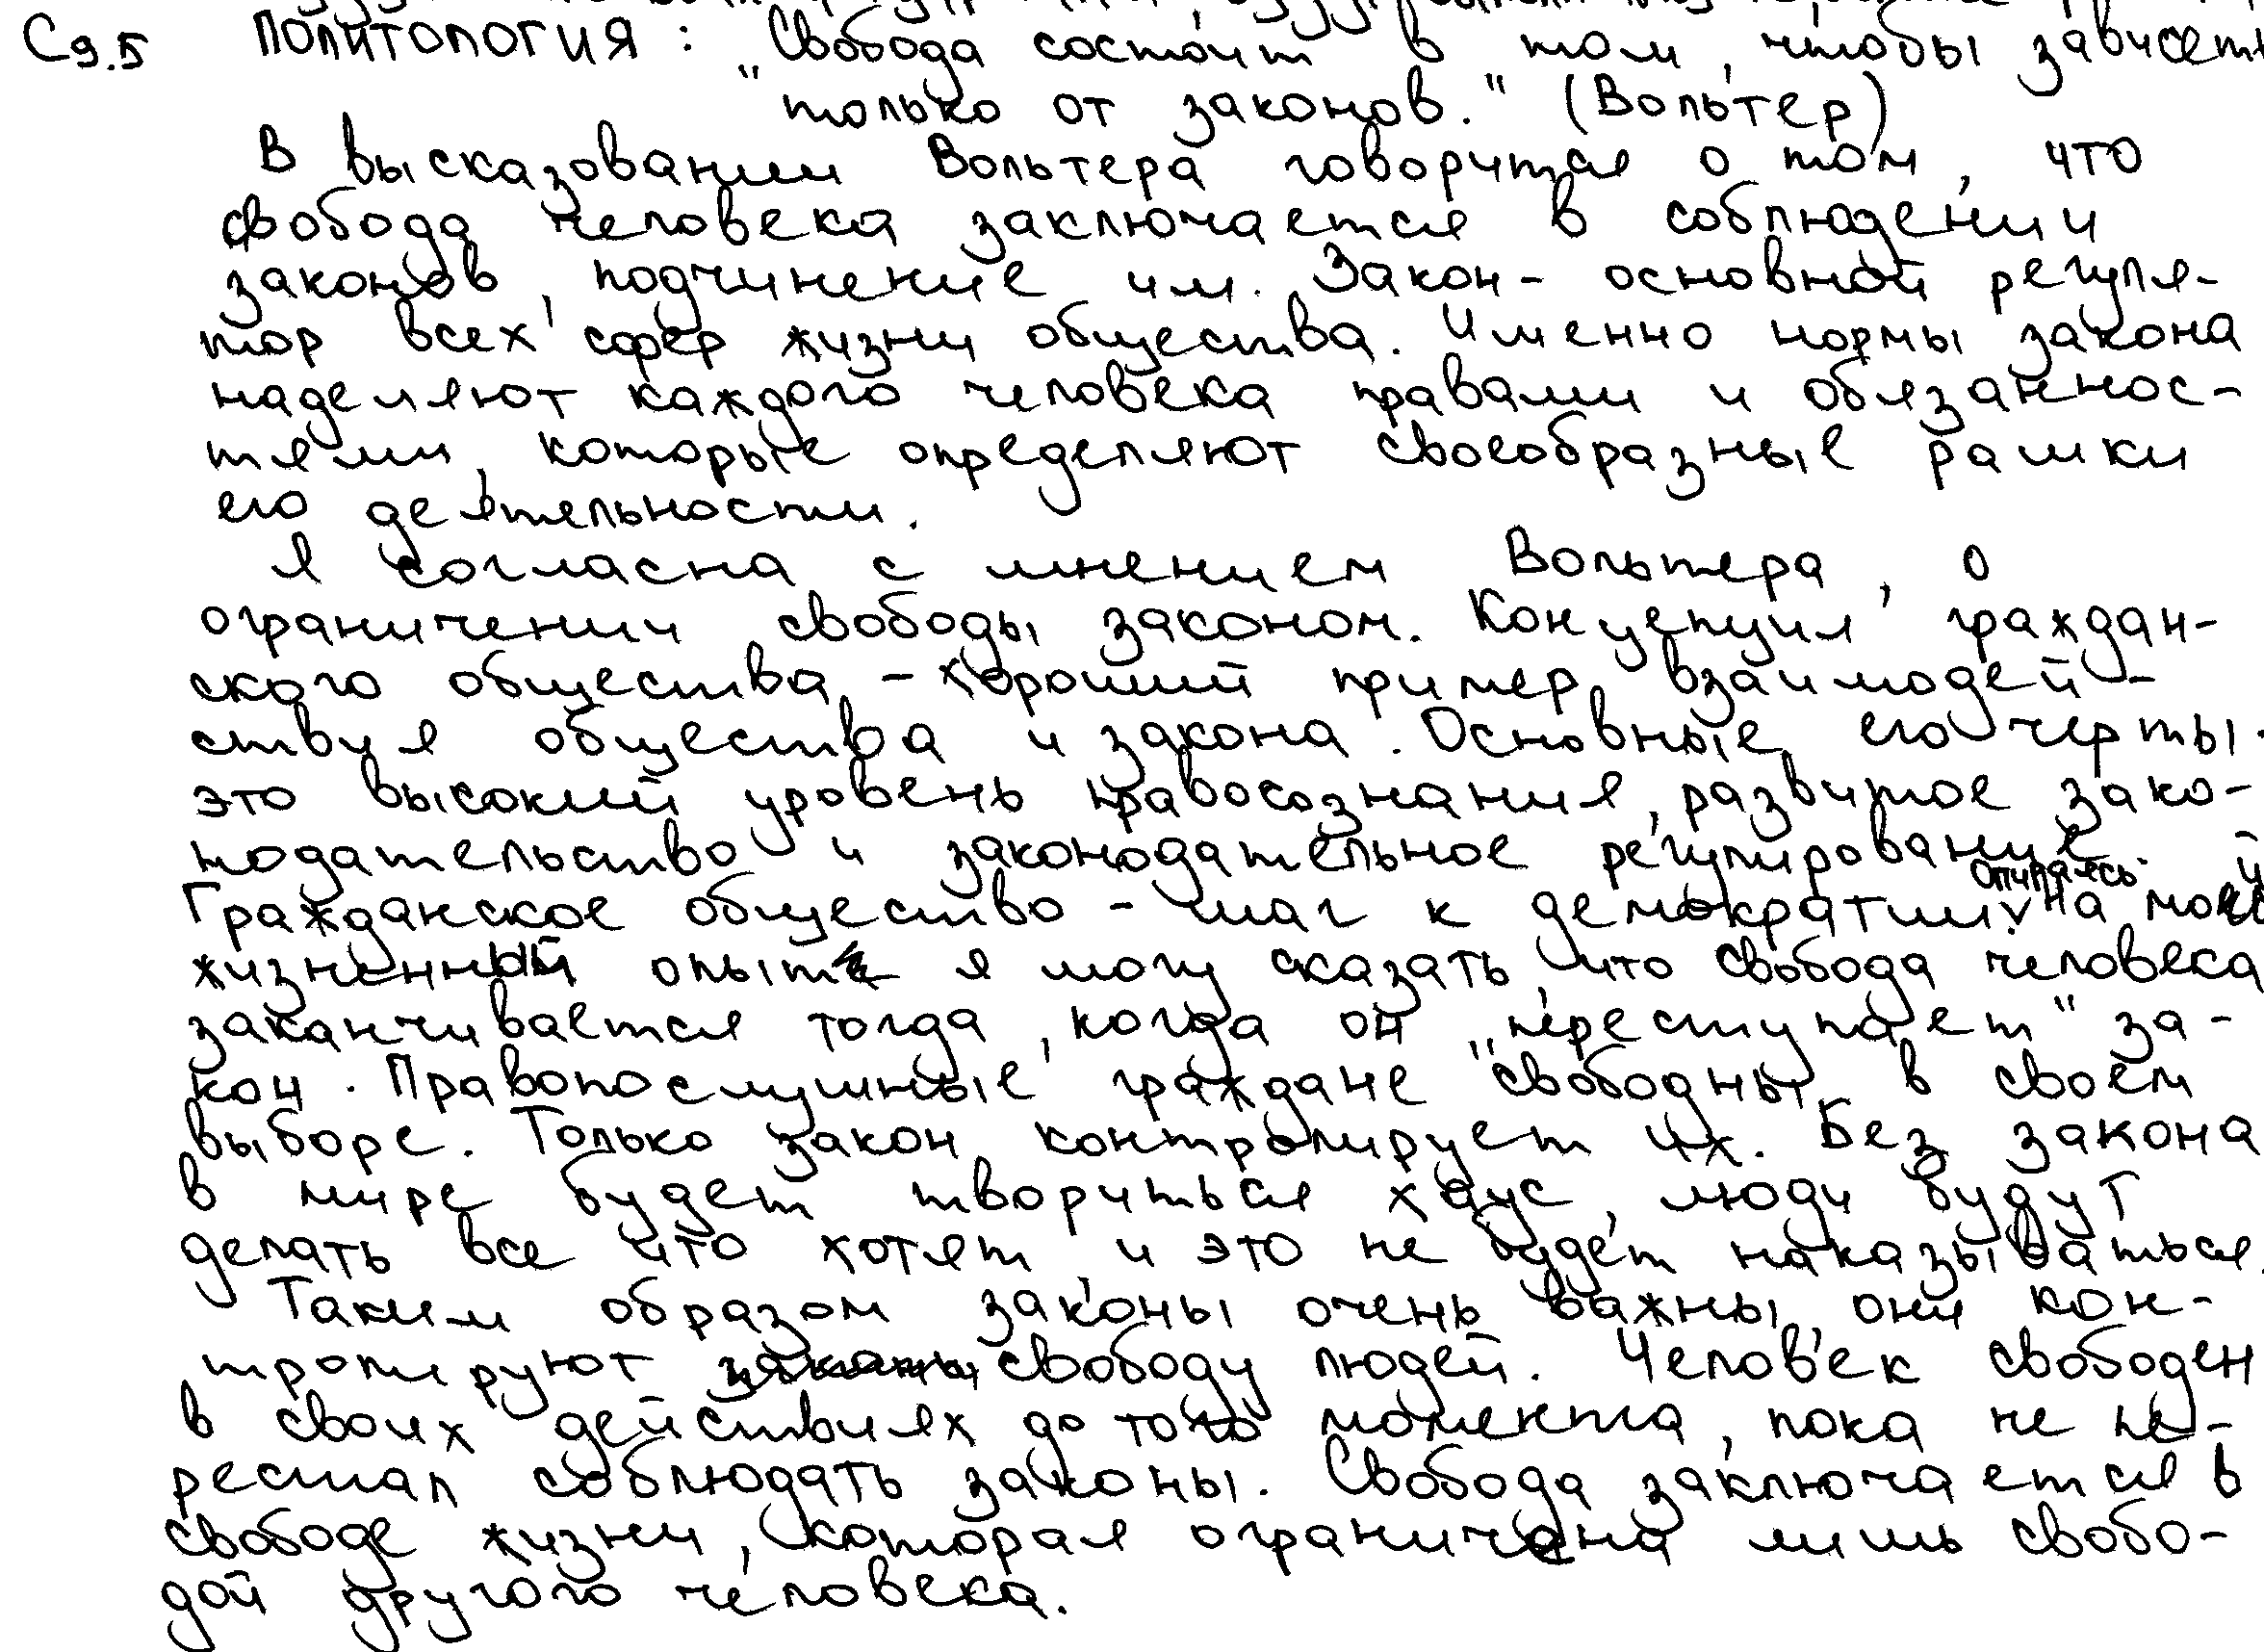 С9.5 Политология: "Свобода состоит в том, чтобы зависеть
только от законов." (Вольтер)
В высказывании Вольтера говорится о том, что
свобода человека заключается в соблюдении
законов, подчинение им. Закон - основной регуля-
тор всех сфер жизни общества. Именно нормы закона
наделяют каждого человека правами и обязаннос-
тями, которые определяют своеобразные рамки
его деятельности.
Я согласна с мнением Вольтера, о
ограничении свободы законом. Концепция граждан-
ского общества - хороший пример взаимодей-
ствия общества и закона. Основные его черты -
это высокий уровень правосознания, развитое зако-
нодательство и законодательное регулирование.
Гражданское общество - шаг к демократии. Опираясь на мой
жизненный опыт я могу сказать, что свобода человека
заканчивается тогда, когда он "переступает" за-
кон. Правопослушные граждане свободны в своём
выборе. Только закон контролирует их. Без закона
в мире будет твориться хаус, люди будут
делать все что хотят, и это не будет наказываться.
Таким образом законы очень важны, они кон-
тролируют свободу людей. Человек свободен
в своих действиях до того момента, пока не пе-
рестал соблюдать законы. Свобода заключается в
свободе жизни, которая ограничена лишь свобо-
дой другого человека.